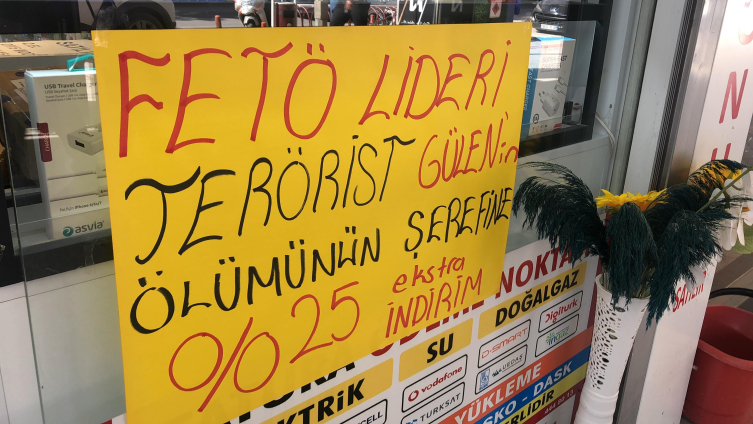 FETÖ LİDERİ
TERÖRİST GÜLENİn
ÖLÜMÜNÜN ŞEREFİNE
%25 ekstra İNDİRİM
USB Travel Charger
asvia
NOKTA
SU
DOĞALGAZ
D-SMART
Digiturk
vodafone
UEDAŞ
TURKSAT
YÜKLEME
DASK